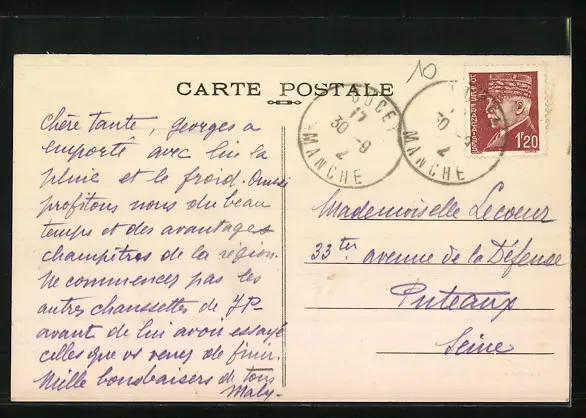 10
CARTE POSTALE
DUCEY
17
30-9
MANCHE
30-9
MANCHE
1F20
Chère Tante, Georges a
emporté avec lui la
pluie et le froid. Aussi
profitons nous du beau
temps et des avantages
champêtres de la région.
Ne commencez pas les
autres chaussettes de JP
avant de lui avoir essayé
celles que vs venez de finir.
Mille bons baisers de tous
Maly.
Mademoiselle Lecoeur
33 ter avenue de la Défense
Puteaux
Seine